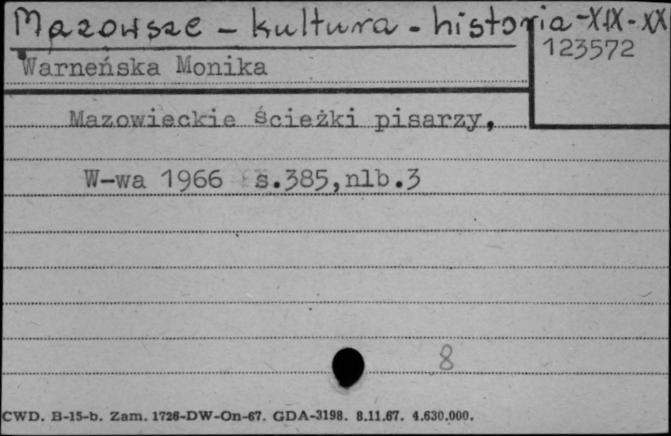 Mazowsze - kultura - historia - XIX - XX
123572
Warneńska Monika
Mazowieckie ścieżki pisarzy,
W-wa 1966 s.385,nlb.3
8
CWD. B-15-b. Zam. 1726-DW-On-67. GDA-3198. 8.11.67. 4.630.000.